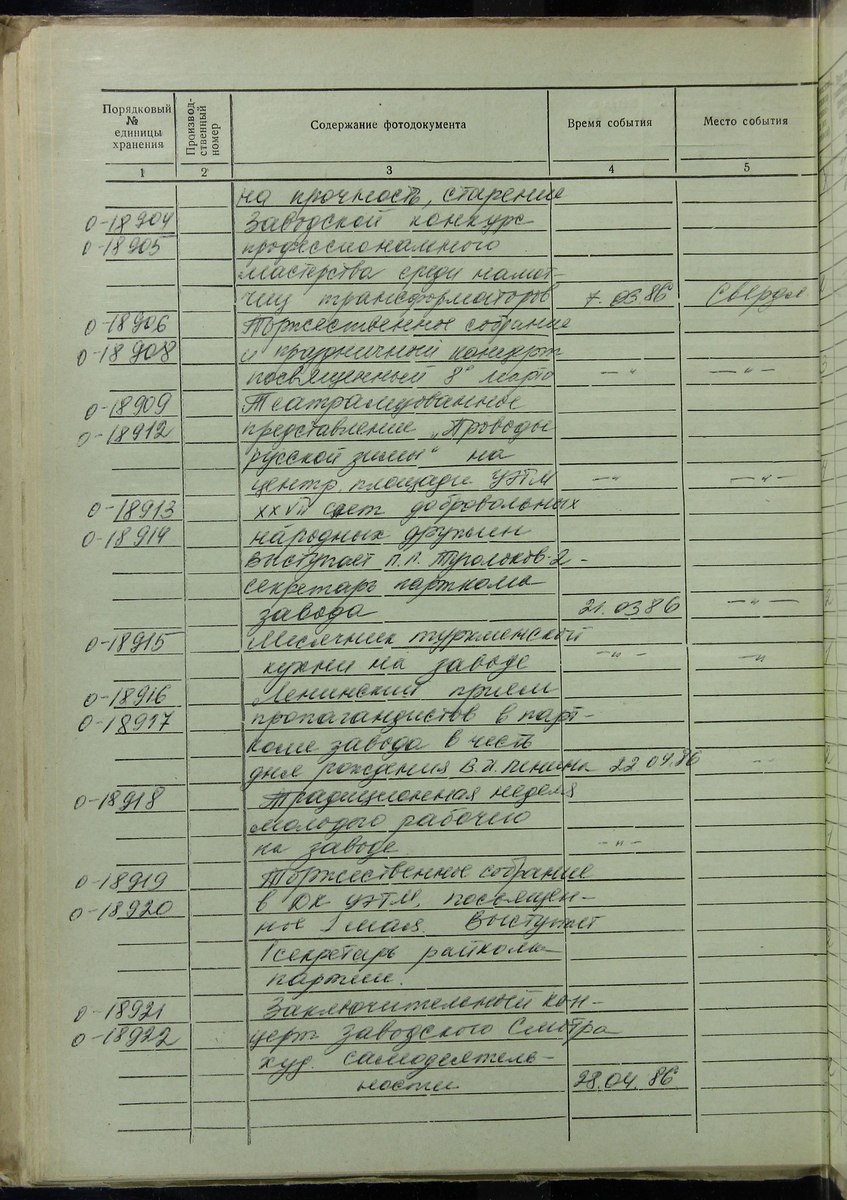 Порядковый № единицы хранения
Производ-ственный номер
Содержание фотодокумента
Время события
Место события
1 2 3 4 5
на прочность, старение
0-18904 Заводской конкурс
0-18905 профессионального
мастерства среди намот-
чиц трансформаторов 7.03.86 Свердл
0-18906 Торжественное собрание
0-18908 и праздничный концерт
посвященный 8º марта —"— —"—
0-18909 Театрализованное
0-18912 представление „Проводы
русской зимы" на
центр. площади УЭТМ —"— —"—
0-18913 XXVII слет добровольных
0-18914 народных дружин
Выступает П.П. 2-
секретарь парткома
завода 21.03 86 —"—
0-18915 Месячник туркменской
кухни на заводе —"— —"—
0-18916 Ленинский прием
0-18917 пропагандистов в парт-
коме завода в честь
дня рождения В.И. Ленина 22 04.86 —"—
0-18918 Традиционная неделя
молодого рабочего
на заводе —"—
0-18919 Торжественное собрание
0-18920 в ДК УЭТМ, посвящен-
ное 1 мая. Выступает
1 секретарь райкома
партии.
0-18921 Заключительный кон-
0-18922 церт заводского Смотра
худ. самодеятель-
ности 28.04.86